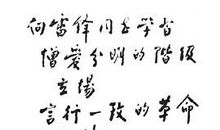 向雷锋同志学习
憎爱分明的階级
立場
言行一致的革命